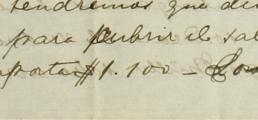 tendremos que de
para cubrir el sal
porta $1.100 - Los